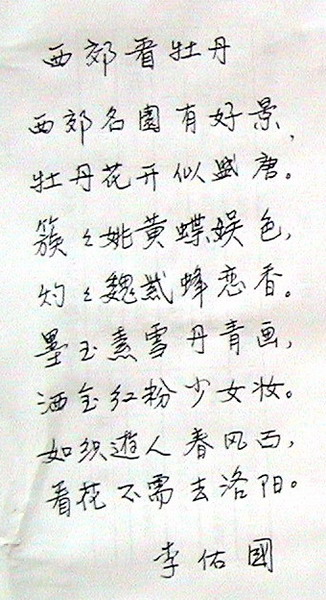 西郊看牡丹
西郊名園有好景,
牡丹花开似盛唐。
簇々姚黄蝶娱色,
灼々魏紫蜂恋香。
墨玉素雪丹青画,
洒金红粉少女妆。
如织遊人春风面,
看花不需去洛阳。
李佑國